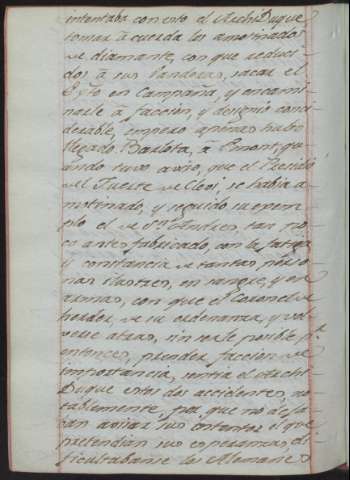 intentaba con esto el Archi Duque
tomar â cuerda los amotinados
de diamante, con que reduci
dos â sus vanderas, sacar el
Exto en Campaña, y encami
narle â faccion, y designio consi
derable, empero apenas hubo
llegado Barlota, â Emont, qu
ando tuvo aviso, que el Presidio
del Fuerte de
se habia a
motinado, y seguido su exem
plo el de Sn Andres, tan po
co antes fabricado, con la fatiga
y constancia de tantas perso
nas ilustres, en sangre, y en
armas, con que el Coronel
de su ordenanza, y vol
verse atras, sin serle posible pr
entonces, prender faccion de
importancia, sentia el Archi
Duque estos dos accidentes, no
tablemente, por que no deja
ban aviar sus intentos el que
pretendian sus esperanzas, di
ficultabanse los Alemanes